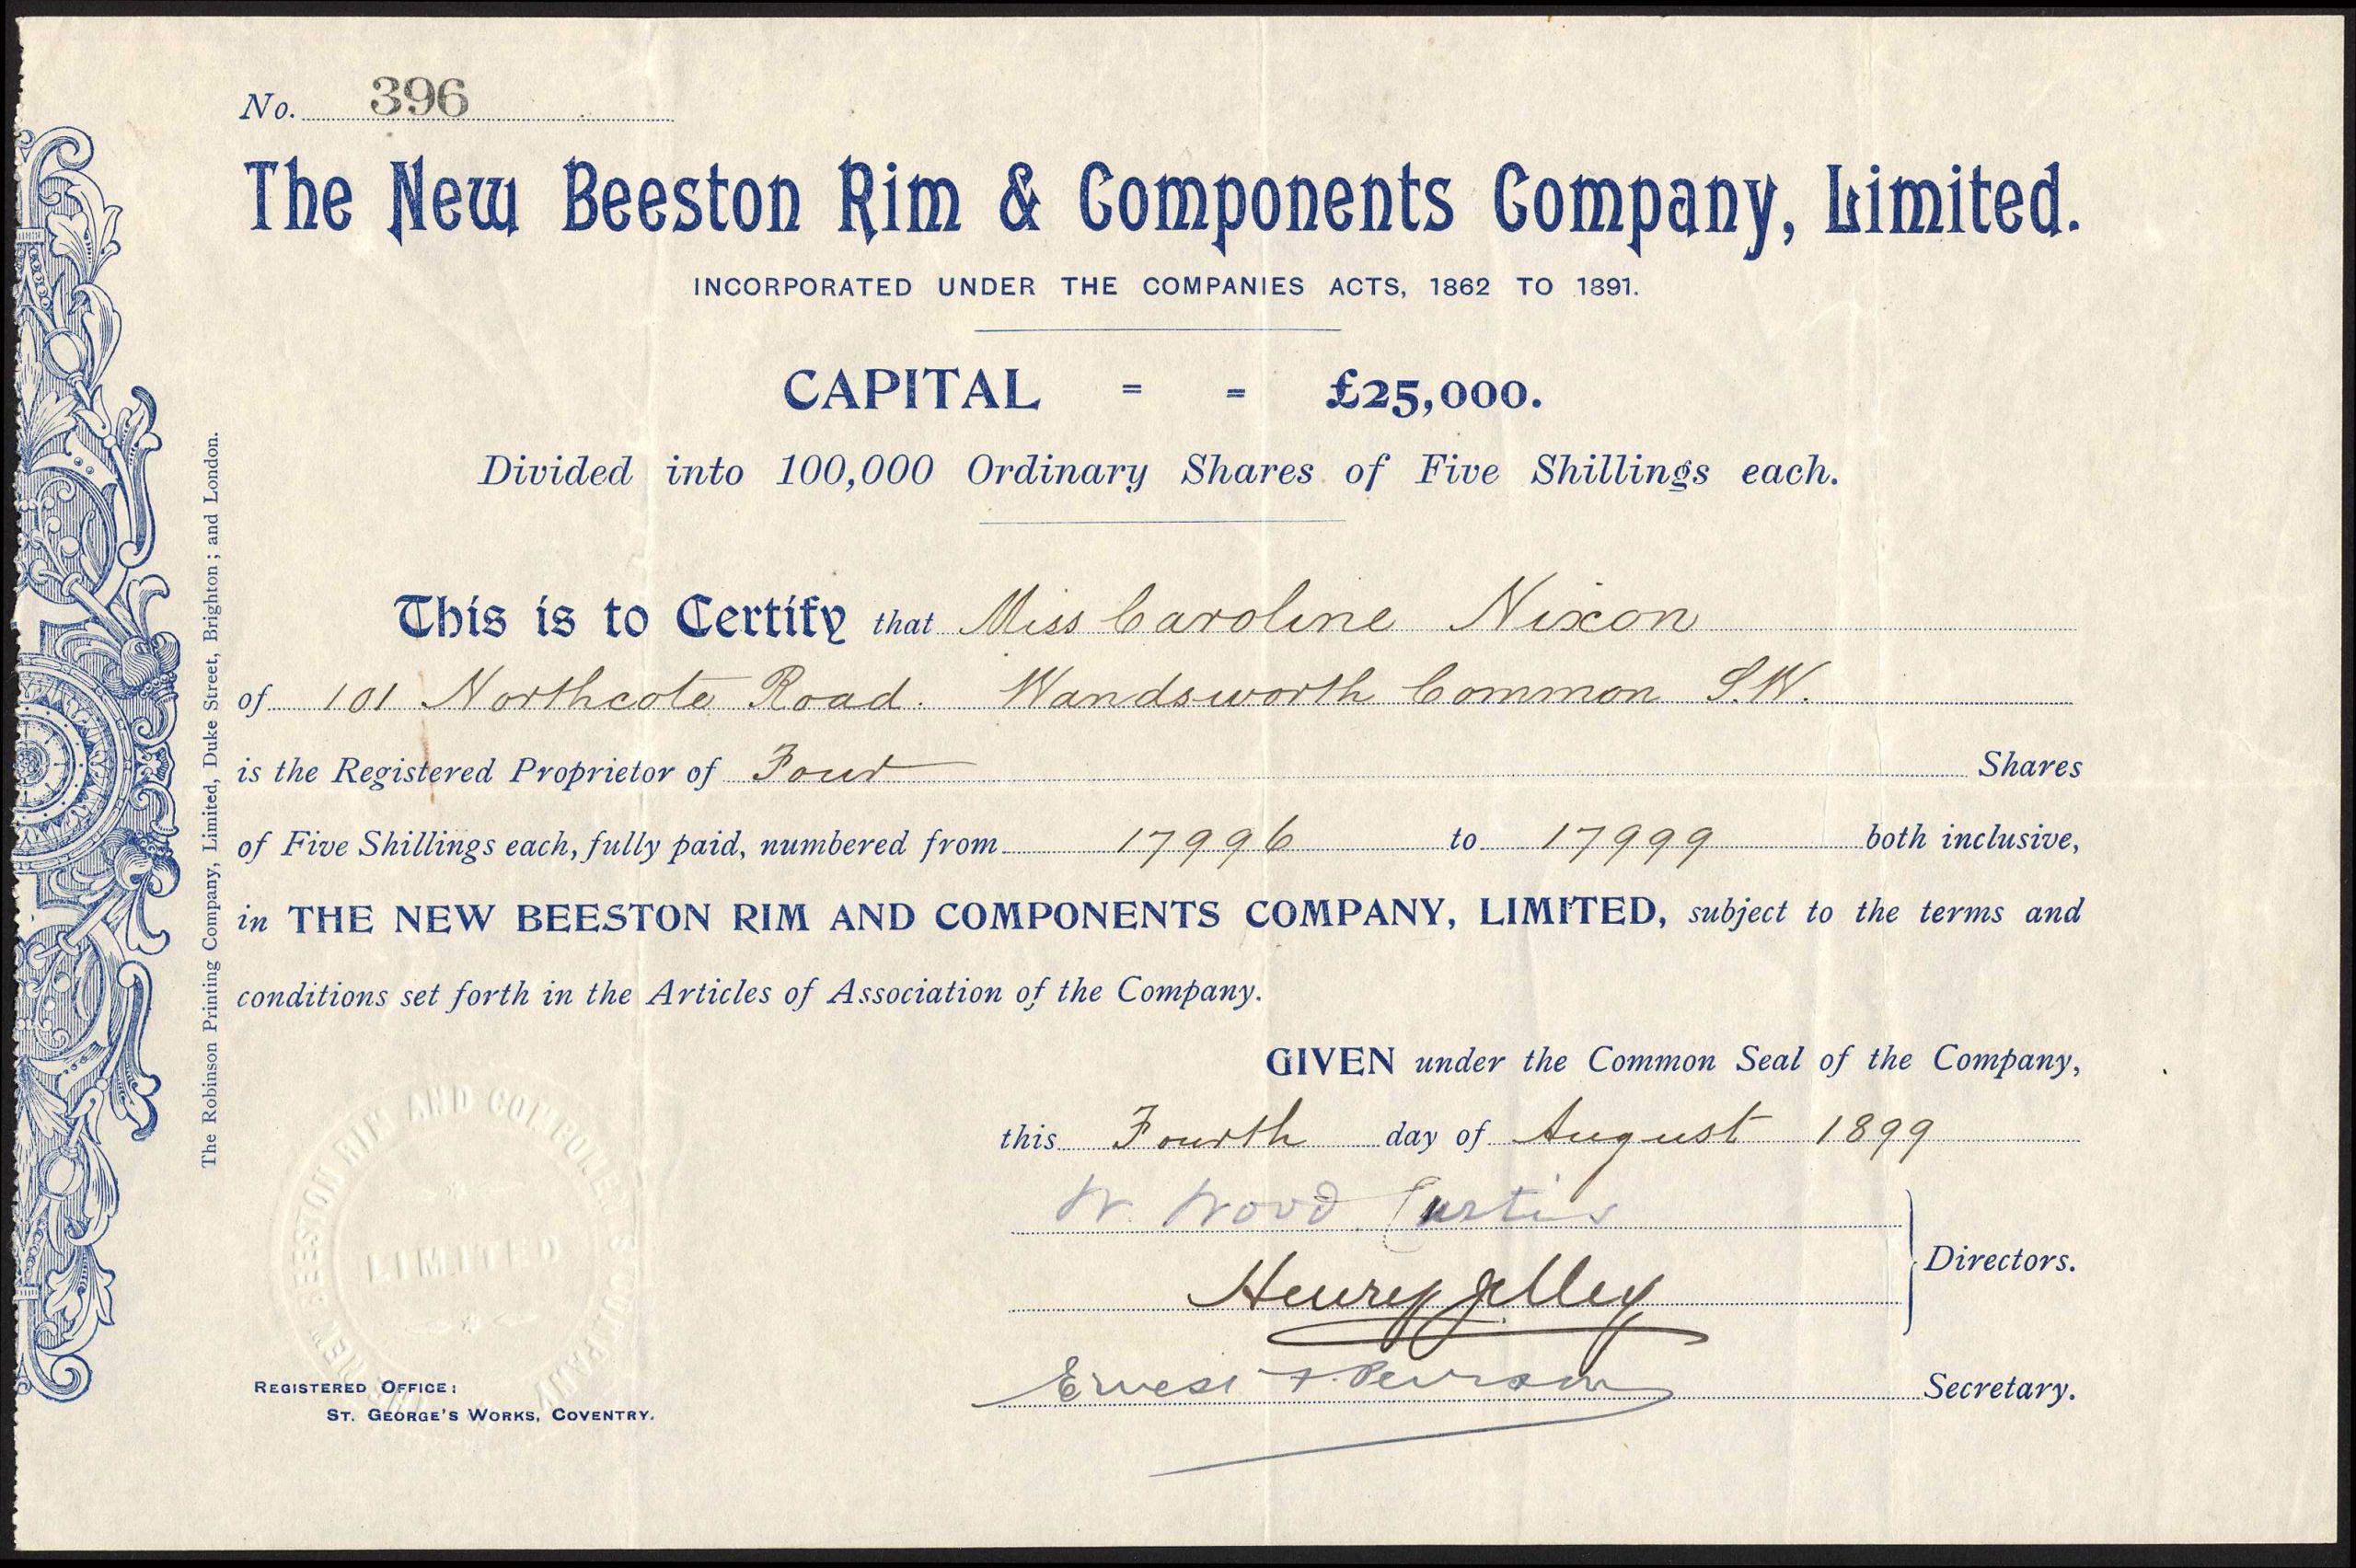 No. 396
The New Beeston Rim & Components Company, Limited.
INCORPORATED UNDER THE COMPANIES ACTS, 1862 TO 1891.
CAPITAL = = £25,000.
Divided into 100,000 Ordinary Shares of Five Shillings each.
This is to Certify that Miss Caroline Nixon
of 101 Northcote Road. Wandsworth Common S.W.
is the Registered Proprietor of Four Shares
of Five Shillings each, fully paid, numbered from 17996 to 17999 both inclusive,
in THE NEW BEESTON RIM AND COMPONENTS COMPANY, LIMITED, subject to the terms and
conditions set forth in the Articles of Association of the Company.
GIVEN under the Common Seal of the Company,
this Fourth day of August 1899
W. Wood Curtis
Henry Jelley
Directors.
Ernest F. Peirson
Secretary.
THE NEW BEESTON RIM AND COMPONENTS COMPANY
LIMITED
REGISTERED OFFICE:
ST. GEORGE'S WORKS, COVENTRY.
The Robinson Printing Company, Limited, Duke Street, Brighton; and London.